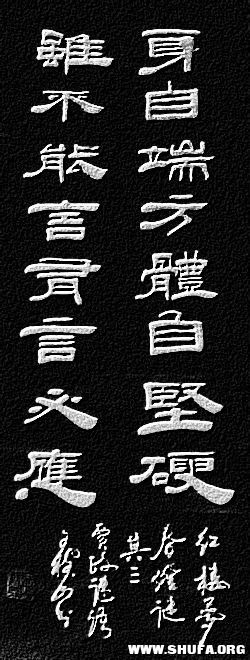 身自端方體自堅硬
雖不能言有言必應
红楼夢
春燈谜
其三
賈政谜语
WWW.SHUFA.ORG